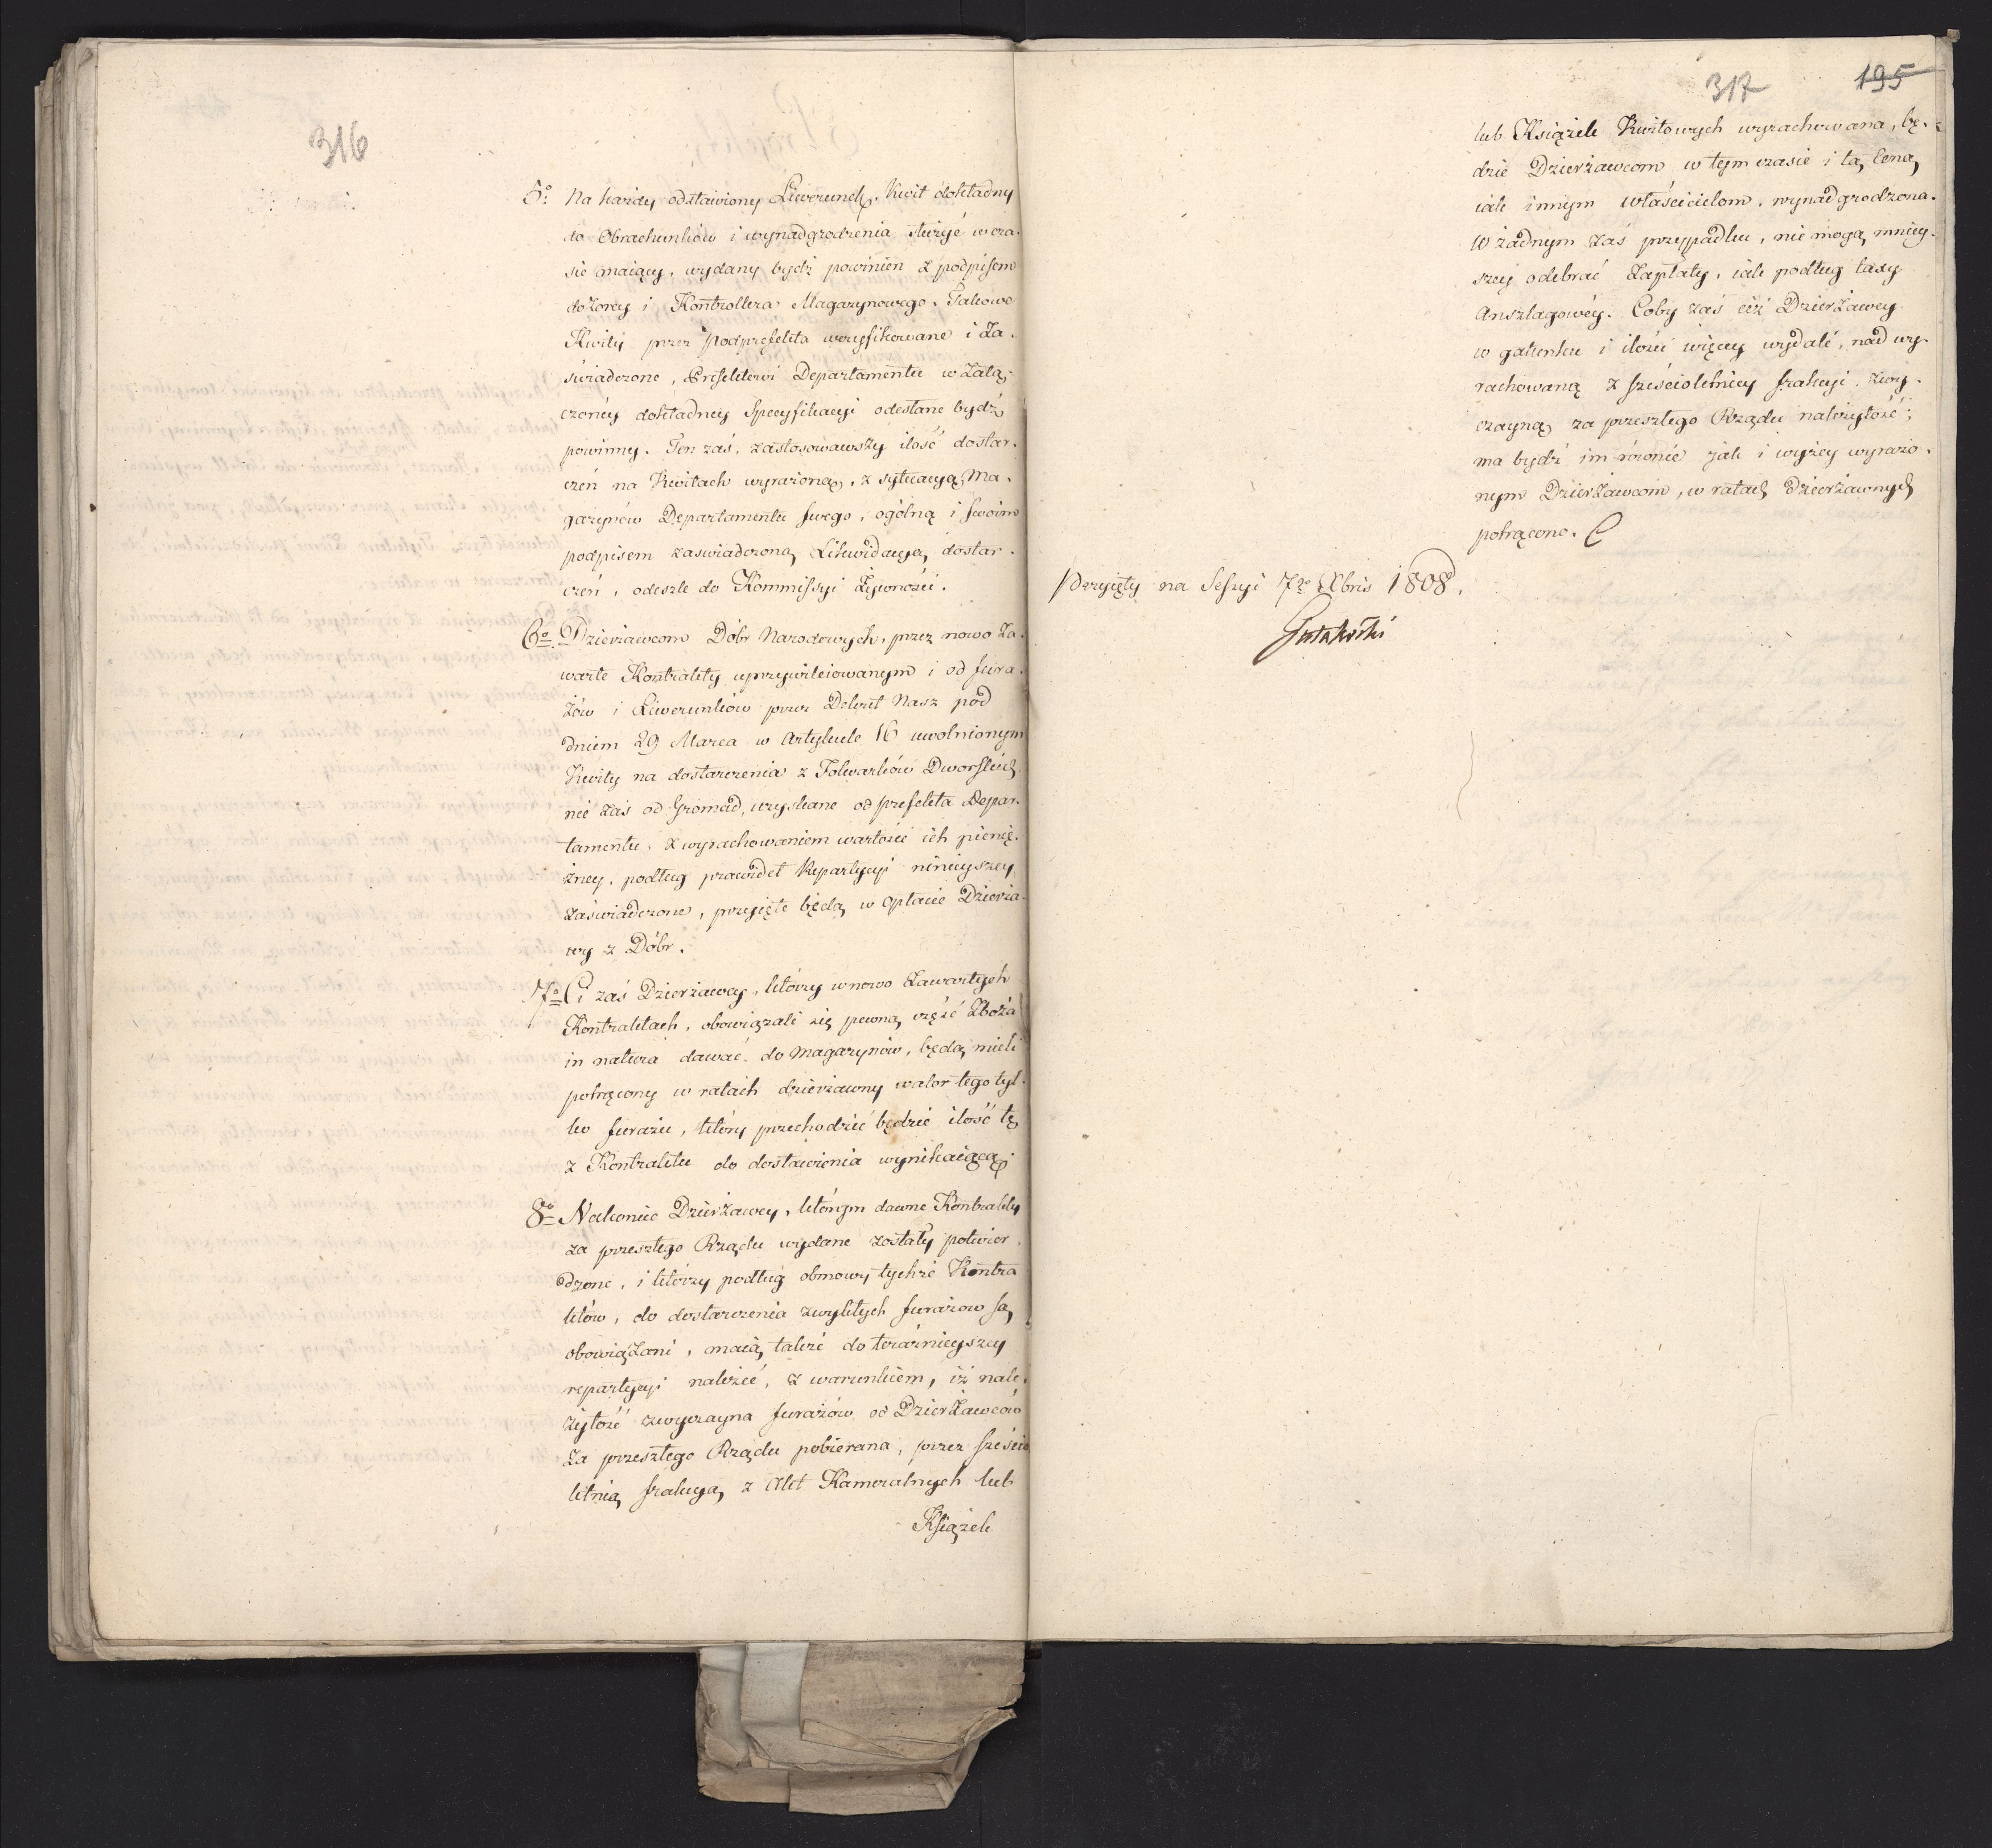 316
5º Na każdy odstawiony Liwerunek, Kwit dokładny
do Obrachunków i wynadgrodzenia służyć w cza-
sie maiący, wydany bydź powinien z podpisem
dozorcy i Kontrollera Magazynowego. Takowe
Kwity przez Podprefekta weryfikowane i za-
świadczone, Prefektowi Departamentu w załą-
czoney dokładney Specyfikacyi odesłane bydź
powinny. Ten zaś, zastosowawszy ilość dostar-
czeń na Kwitach wyrażoną, z sytuacyą Ma-
gazynów Departamentu swego, ogólną i swoim
podpisem zaświadczoną Likwidacyą dostar-
czeń, odeszle do Kommissyi Żywności.
6º Dzierżawcom Dóbr Narodowych, przez nowo za-
warte Kontrakty uprzywileiowanym i od fura-
żów i Liwerunków przez Dekret Nasz pod
dniem 29 Marca w Artykule 16 uwolnionym
Kwity na dostarczenia z Folwarków Dworskich
nie zaś od Gromad, wzyskane od prefekta Depar-
tamentu, z wyrachowaniem wartości ich pienię-
żney, podług prawideł Repartycyi ninieyszey
zaświadczone, przyięte będą w opłacie Dzierża-
wy z Dóbr.
7º Ci zaś Dzierżawcy, którzy w nowo zawartych
Kontraktach, obowiązali się pewną część Zboża
in natura dawać do Magazynów, będą mieli
potrącony w ratach dzierżawny walor tego tyl-
ko furażu, który przechodzić będzie ilość tę
z Kontraktu do dostawienia wynikaiącą.
8º Nakoniec Dzierżawcy, którym dawne Kontrakty
za przeszłego Rządu wydane zostały potwier-
dzone, i którzy podług obmowy tychże Kontra-
któw, do dostarczenia zwykłych furażow są
obowiązani, maią także do teraznieyszey
repartycyi należeć, z warunkiem, iż nale-
żytość zwyczayna furażów od Dzierżawców
za przeszłego Rządu pobierana, przez sześcio
letnią frakcyą z Akt Kameralnych lub
Książek
317 195
lub Książek Kwitowych wyrachowana, bę-
dzie Dzierżawcom w tym czasie i tą Ceną,
iak innym właścicielom, wynadgrodzona.
W żadnym zaś przypadku, nie mogą mniey-
szey odebrać zapłaty, iak podług taxy
Anszlagowéy. Coby zaś ciż Dzierżawcy
w gatunku i ilości więcey wydali, nad wy-
rachowaną z sześcioletniey frakcyi, zwy-
czayną za przeszłego Rządu należytość;
ma bydź im rôwnie jak i wyżey wyrażo-
nym Dzierżawcom, w ratach dzierżawnych
potrącono.
Przyięty na Sessyi 7go Xbris 1808.
Gutakowski